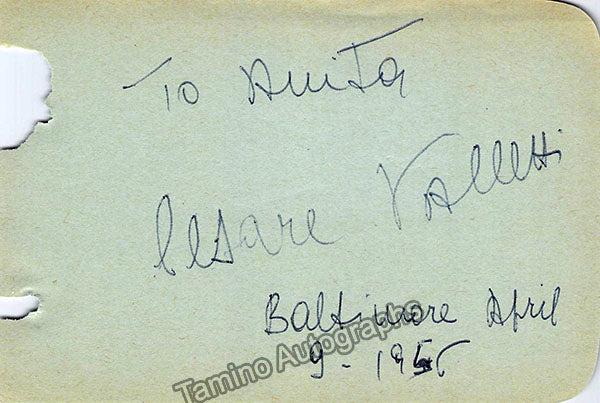 To Anita
Cesare Valletti
Baltimore April
9 - 1956
Tamino Autographs